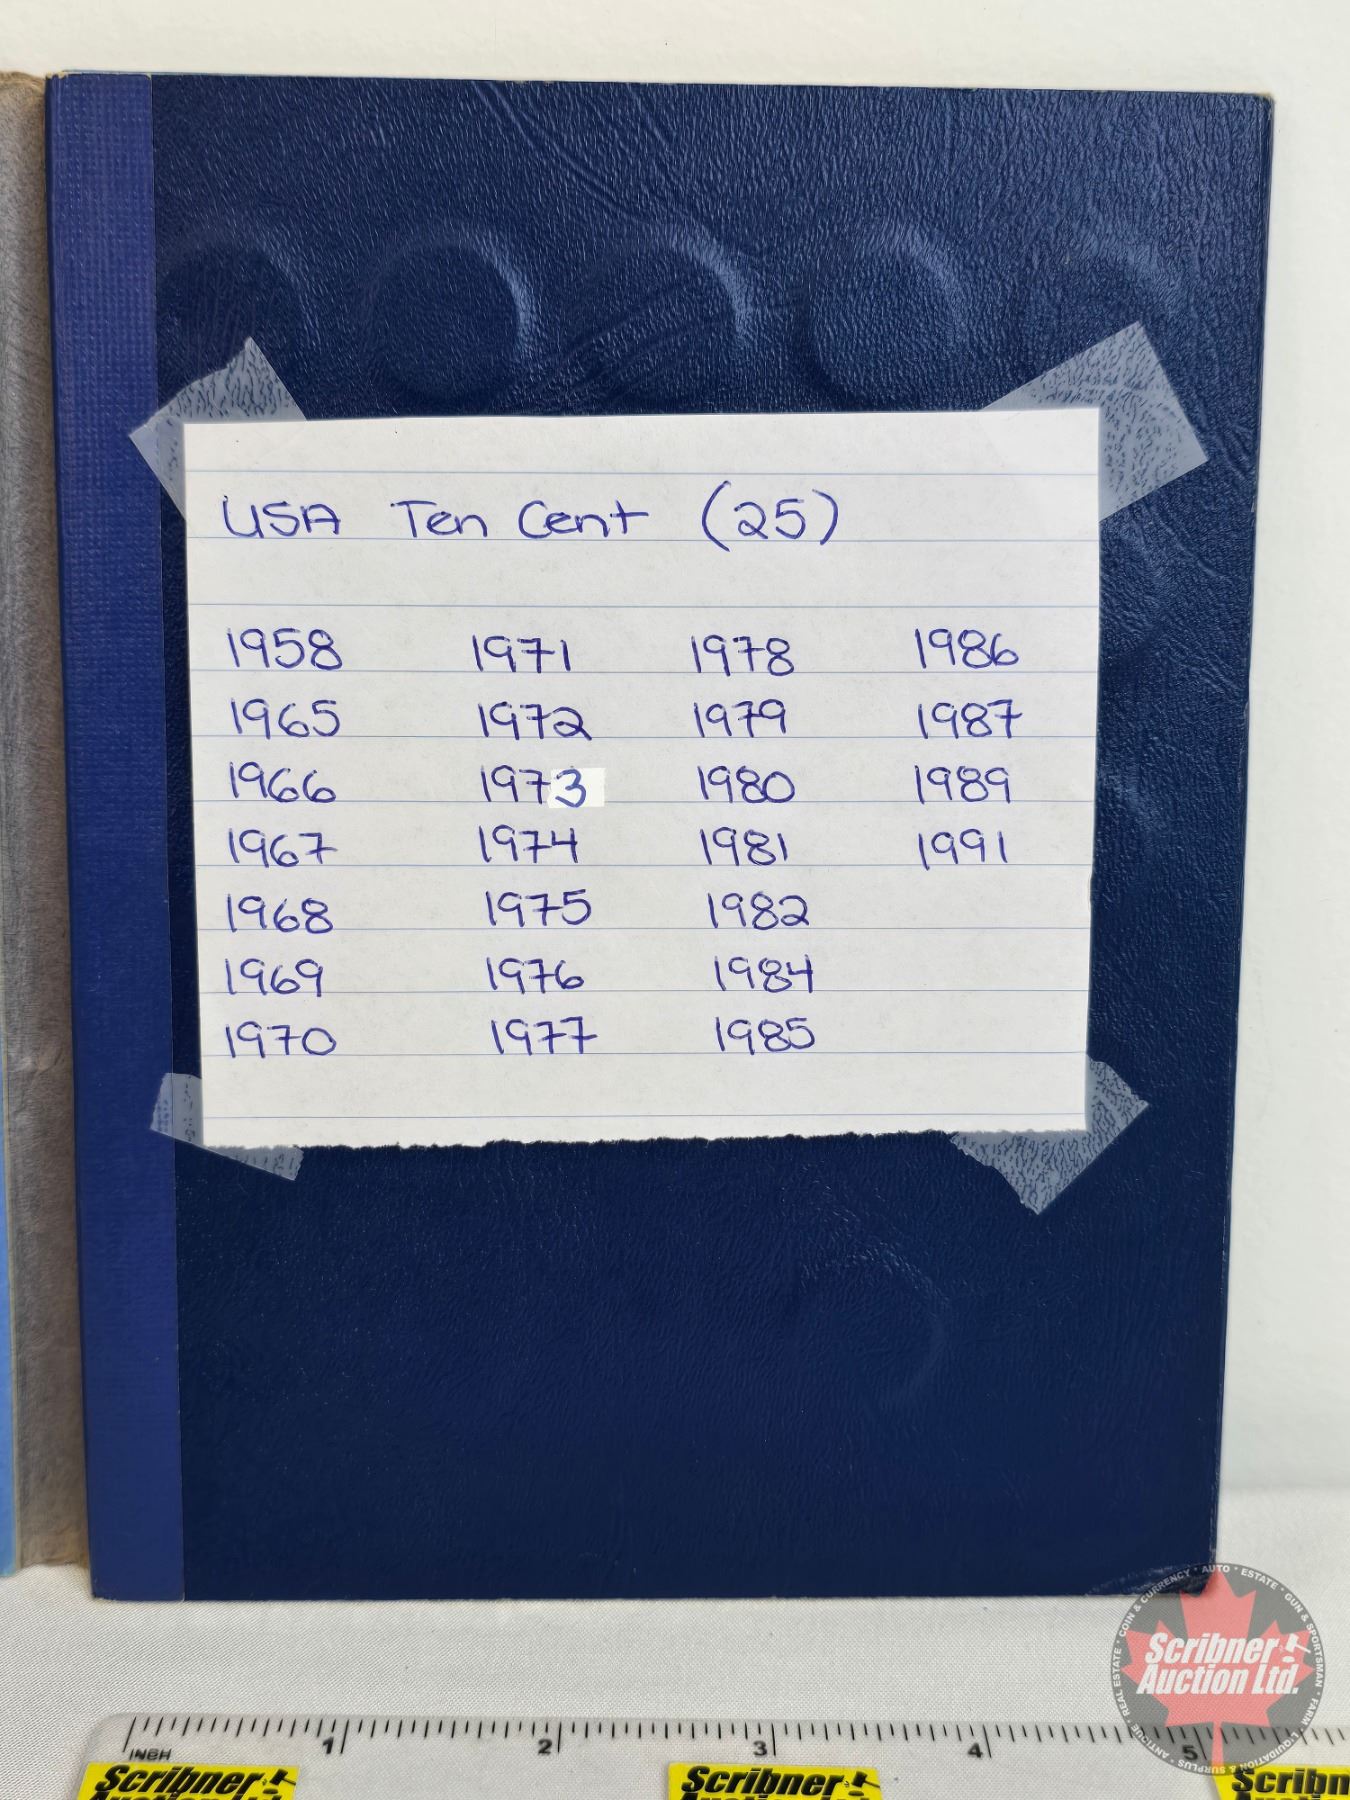 USA Ten Cent (25)
1958 1971 1978 1986
1965 1972 1979 1987
1966 1973 1980 1989
1967 1974 1981 1991
1968 1975 1982
1969 1976 1984
1970 1977 1985
COIN & CURRENCY • AUTO • ESTATE • GUN & SPORTSMAN • FARM • LIQUIDATION & SURPLUS • ANTIQUE • REAL ESTATE •
Scribner
Auction Ltd.
INCH 1 2 3 4 5
Scribner Scribner Scribn